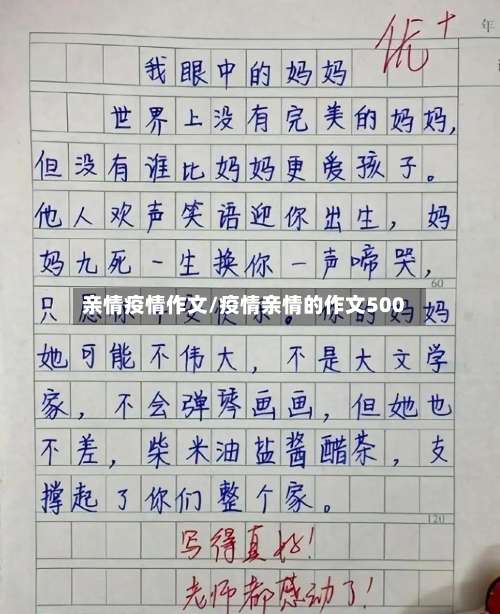 年
优+
我眼中的妈妈
世界上没有完美的妈妈,
但没有谁比妈妈更爱孩子。
他人欢声笑语迎你出生,妈
妈九死一生换你一声啼哭,
60
只愿你 的妈妈
亲情疫情作文/疫情亲情的作文500
她可能不伟大,不是大文学
家,不会弹琴画画,但她也
不差,柴米油盐酱醋茶,支
撑起了你们整个家。
120
写得真好!
老师都感动了!